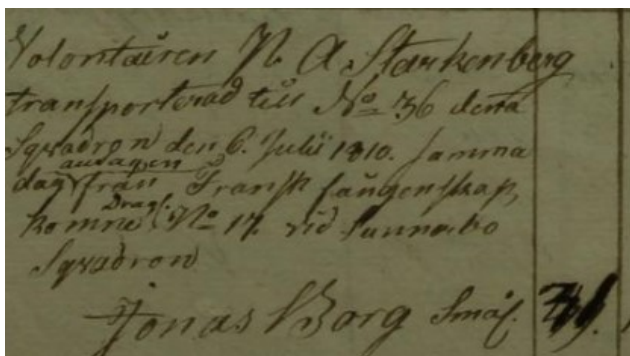 Volontairen N. A Starkenberg
transporterad till No 36 dena
Sqvadron den 6. Julii 1810. samma
dag antagen från Fransk fångenskap,
komne Drag. No 17. vid Sunnerbo
Sqvadron
Jonas Borg Smål.